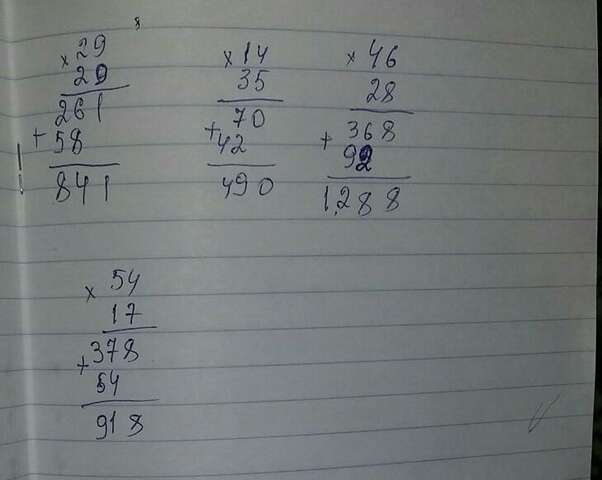 × 29
29
261
+ 58
841
× 14
35
70
+ 42
490
× 46
28
368
+ 92
1,288
× 54
17
+ 378
54
918